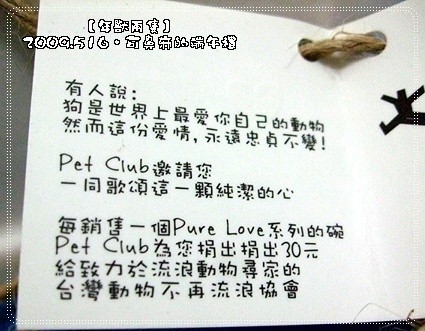 【年獸兩隻】
2009.5/6。前鼻荷的端午禮
有人說:
狗是世界上最愛你自己的動物
然而這份愛情,永遠忠貞不變!
Pet Club邀請您
一同歌頌這一顆純潔的心
每銷售一個Pure Love系列的碗
Pet Club為您捐出捐出30元
給致力於流浪動物尋家的
台灣動物不再流浪協會